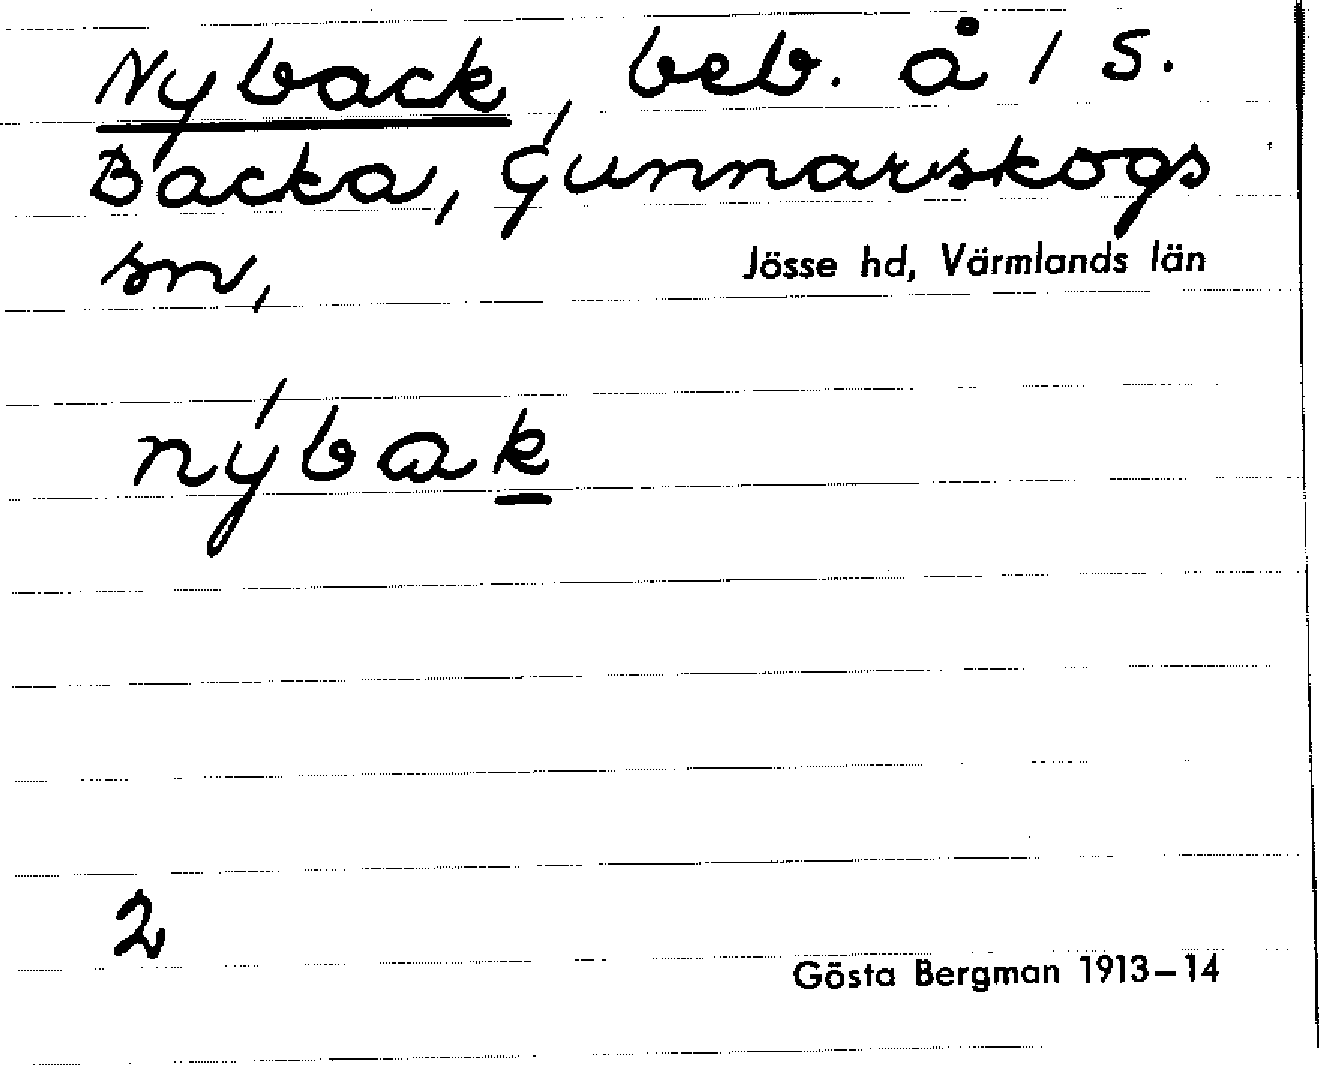 Nyback, beb. å 1 S.
Backa, Gunnarskogs
sn, Jösse hd, Värmlands län
nýbak
2
Gösta Bergman 1913–14